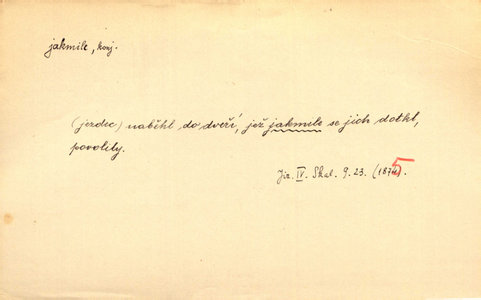 jakmile, konj.
(jezdec) naběhl do dveří, jež jakmile se jich dotkl,
povolily.
Jir. IV. Skal. 9. 23. (1875).